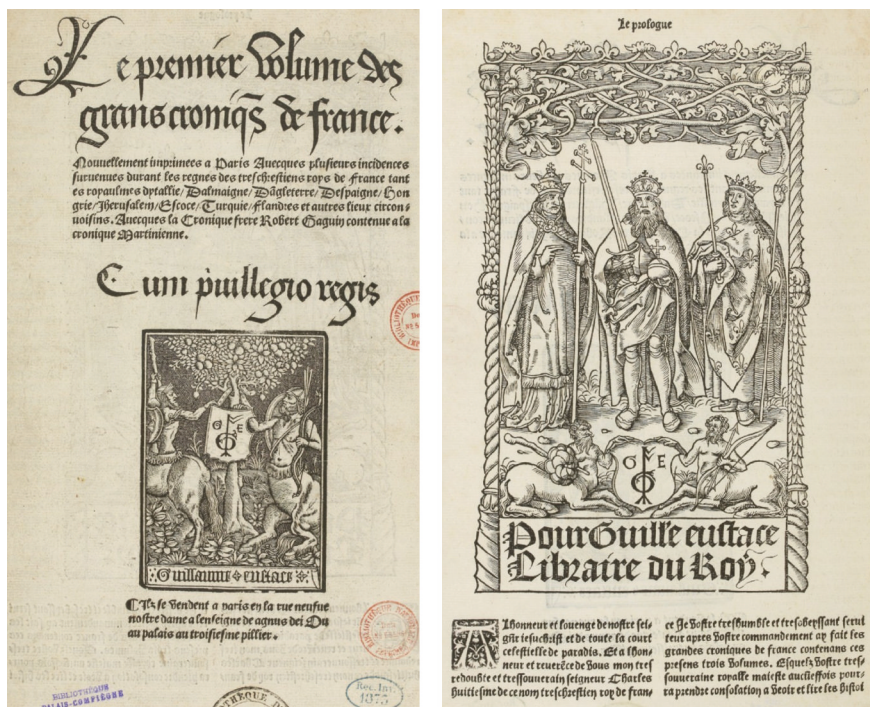 Le premier volume des
grans croniqs de france.
Nouuellement imprimees a Paris Auecques plusieurs incidences
suruenues durant les regnes des treschrestiens roys de France tant
es royaulmes dytallie/Dalmaigne/Dãgleterre/Despaigne/Hon
grie/Jherusalem/Escoce/Turquie/flandres et autres lieux circon-
uoisins. Auecques la Cronique frere Robert Gaguin contenue a la
cronique Martinienne.
Cum priuillegio regis
G E
Guillaume eustace
Ilz se vendent a paris en la rue neufue
nostre dame a lenseigne de agnus dei Ou
au palais au troisiesme pillier.
BIBLIOTHÈQUE
PALAIS-COMPIÈGNE
Rec. Inv.
1873
Le prologue
G E
Pour Guille eustace
Libraire du Roy.
A Lhonneur et louenge de nostre sei-
gñr iesuchrist et de toute la court
celestielle de paradis. Et a lhon-
neur et reuerẽce de vous mon tres
redoubte et tressouuerain seigneur Charles
huitiesme de ce nom treschrestien roy de fran-
ce Je vostre treshumble et tresobeyssant serui
teur apres vostre commandement ay fait les
grandes croniques de france contenans ces
presens trois volumes. Esquelz vostre tres-
souueraine royalle maieste aucuneffois pour-
ra prendre consolation a veoir et lire les histoi